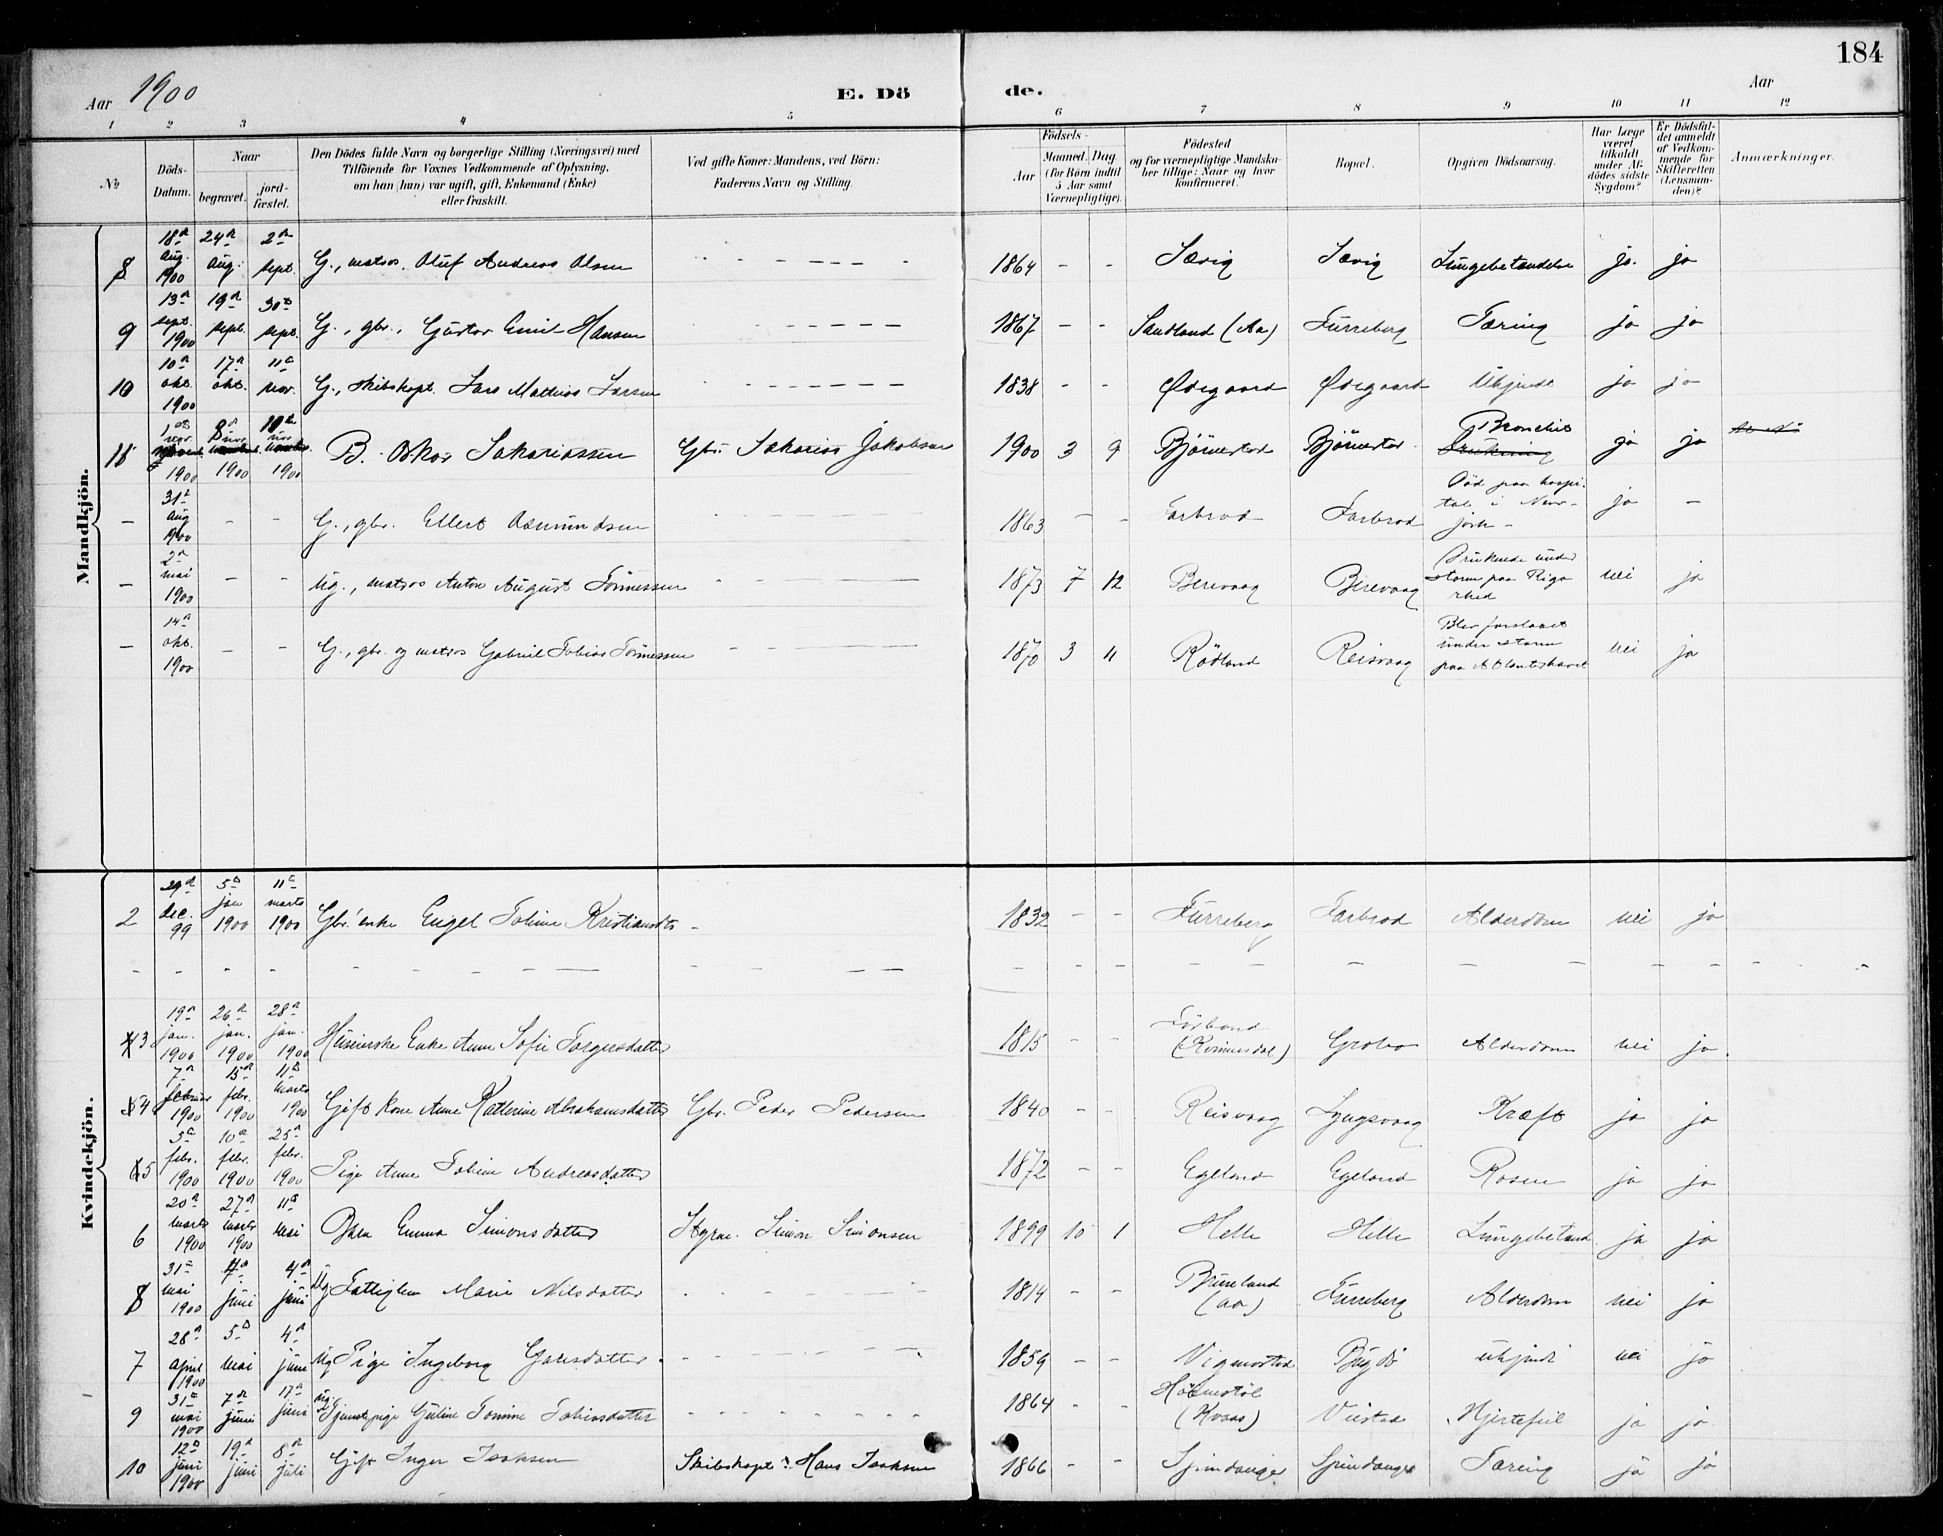 184
Aar 1900
E. Dö de.
Aar
1 2 3 4 5 6 7 8 9 10 11 12
No
Döds-Datum.
Naar
begravet.
jord-fæstet.
Den Dödes fulde Navn og borgerlige Stilling (Næringsvei) med
Tilföiende for Voxnes Vedkommende af Oplysning,
om han (hun) var ugift, gift, Enkemand (Enke)
eller fraskilt.
Ved gifte Koner: Mandens, ved Börn:
Faderens Navn og Stilling.
Födsels-
Aar
Maaned. Dag.
(for Börn indtil
5 Aar samt
Værnepligtige).
Födested
og for værnepligtige Mandska-
ber tillige: Naar og hvor
konfirmeret.
Bopæl.
Opgiven Dödsaarsag.
Har Læge
været
tilkaldt
under Af-
dödes sidste
Sygdom?
Er Dödsfal-
det anmeldt
af Vedkom-
mende for
Skifteretten
(Lensman-
den)?
Anmærkninger.
Mandkjön.
8 18de aug. 1900 24de aug. 2den sept. G., matros. Oluf Andreas Olsen 1864 - - Sævig Sævig Lungebetændelse ja. ja
9 13de sept. 1900 19de sept. 30te sept. G., gbr., Gustav Emil Hansen 1867 - - Sandland (Aa) Furreberg Tæring ja ja
10 10de okt. 1900 17de okt. 11te nov. G., skibskapt. Lars Mathias Larsen 1838 - - Ødegaard Ødegaard Ukjendt ja ja
11 1ste nov. 1900 8de nov. 1900 nov. 1900 B. Oskar Sakariassen Gbr. Sakarias Jakobsen 1900 3 9 Björnestad Björnestad Bronchit ja ja
- 31te aug 1900 - - G., gbr. Ellert Asmundsen 1863 - - Farbrod Farbrod Död paa hospi-
tal i New-
jork - ja -
- 2den mai 1900 - - Ug., matros Anton August Tönnessen 1873 7 12 Berevaag Berevaag Druknede under
storm paa Riga
rhed nei ja
- 14de okt. 1900 - - G., gbr. og matros Gabriel Tobias Tönnessen 1870 3 11 Rödland Reisvaag Blev forslaaet
under storm
paa Atlanterhavet nei ja
Kvindekjön.
2 29de dec. 99 5te jan 1900 11te marts 1900 Gbr. enke Engel Toline Kristiansdtr - 1832 - - Furreberg Farbrod Alderdom nei ja
3 19de jan. 1900 26de jan. 1900 28de jan. 1900 Huseierske Enke Anne Sofie Torgersdatter 1815 - - (Kvinesdal) Alderdom nei ja.
4 7de februar 1900 15de febr. 1900 11te marts 1900 Gift kone Anne Kathrine Abrahamsdatter Gbr. Peder Pedersen 1840 - - Reisvaag Lyngsvaag Kræft ja ja
5 5te febr. 1900 10de febr. 1900 25de febr. 1900 Pige Anne Toline Andreasdatter 1872 - - Egeland Egeland Rosen ja ja
6 20de marts 1900 27de marts 1900 mai Emma Simonsdatter Styrm. Simon Simonsen 1899 10 1 Helle Helle Lungebetænd. ja ja
8 31te mai 1900 juni 4de juni Ug Fattiglem Marie Nilsdatter 1814 - - Bruseland
(Aa) Furreberg Alderdom nei ja
7 28de april 1900 5te mai 4de juni Ug Pige Ingeborg Garesdatter 1859 - - Vigmostad Bygdö ukjendt nei ja
9 31te mai 1900 7de juni 17de juni Ug. Tjenestepige Guline Tomine Tobiasdatter 1864 - - (Kvaas) Veistad Hjertefeil ja ja
10 12te juni 1900 19de juni 8de juli Gift Inger Isaksen Skibskapt. Hans Isaksen 1866 - - Spindanger Spindanger Tæring ja ja